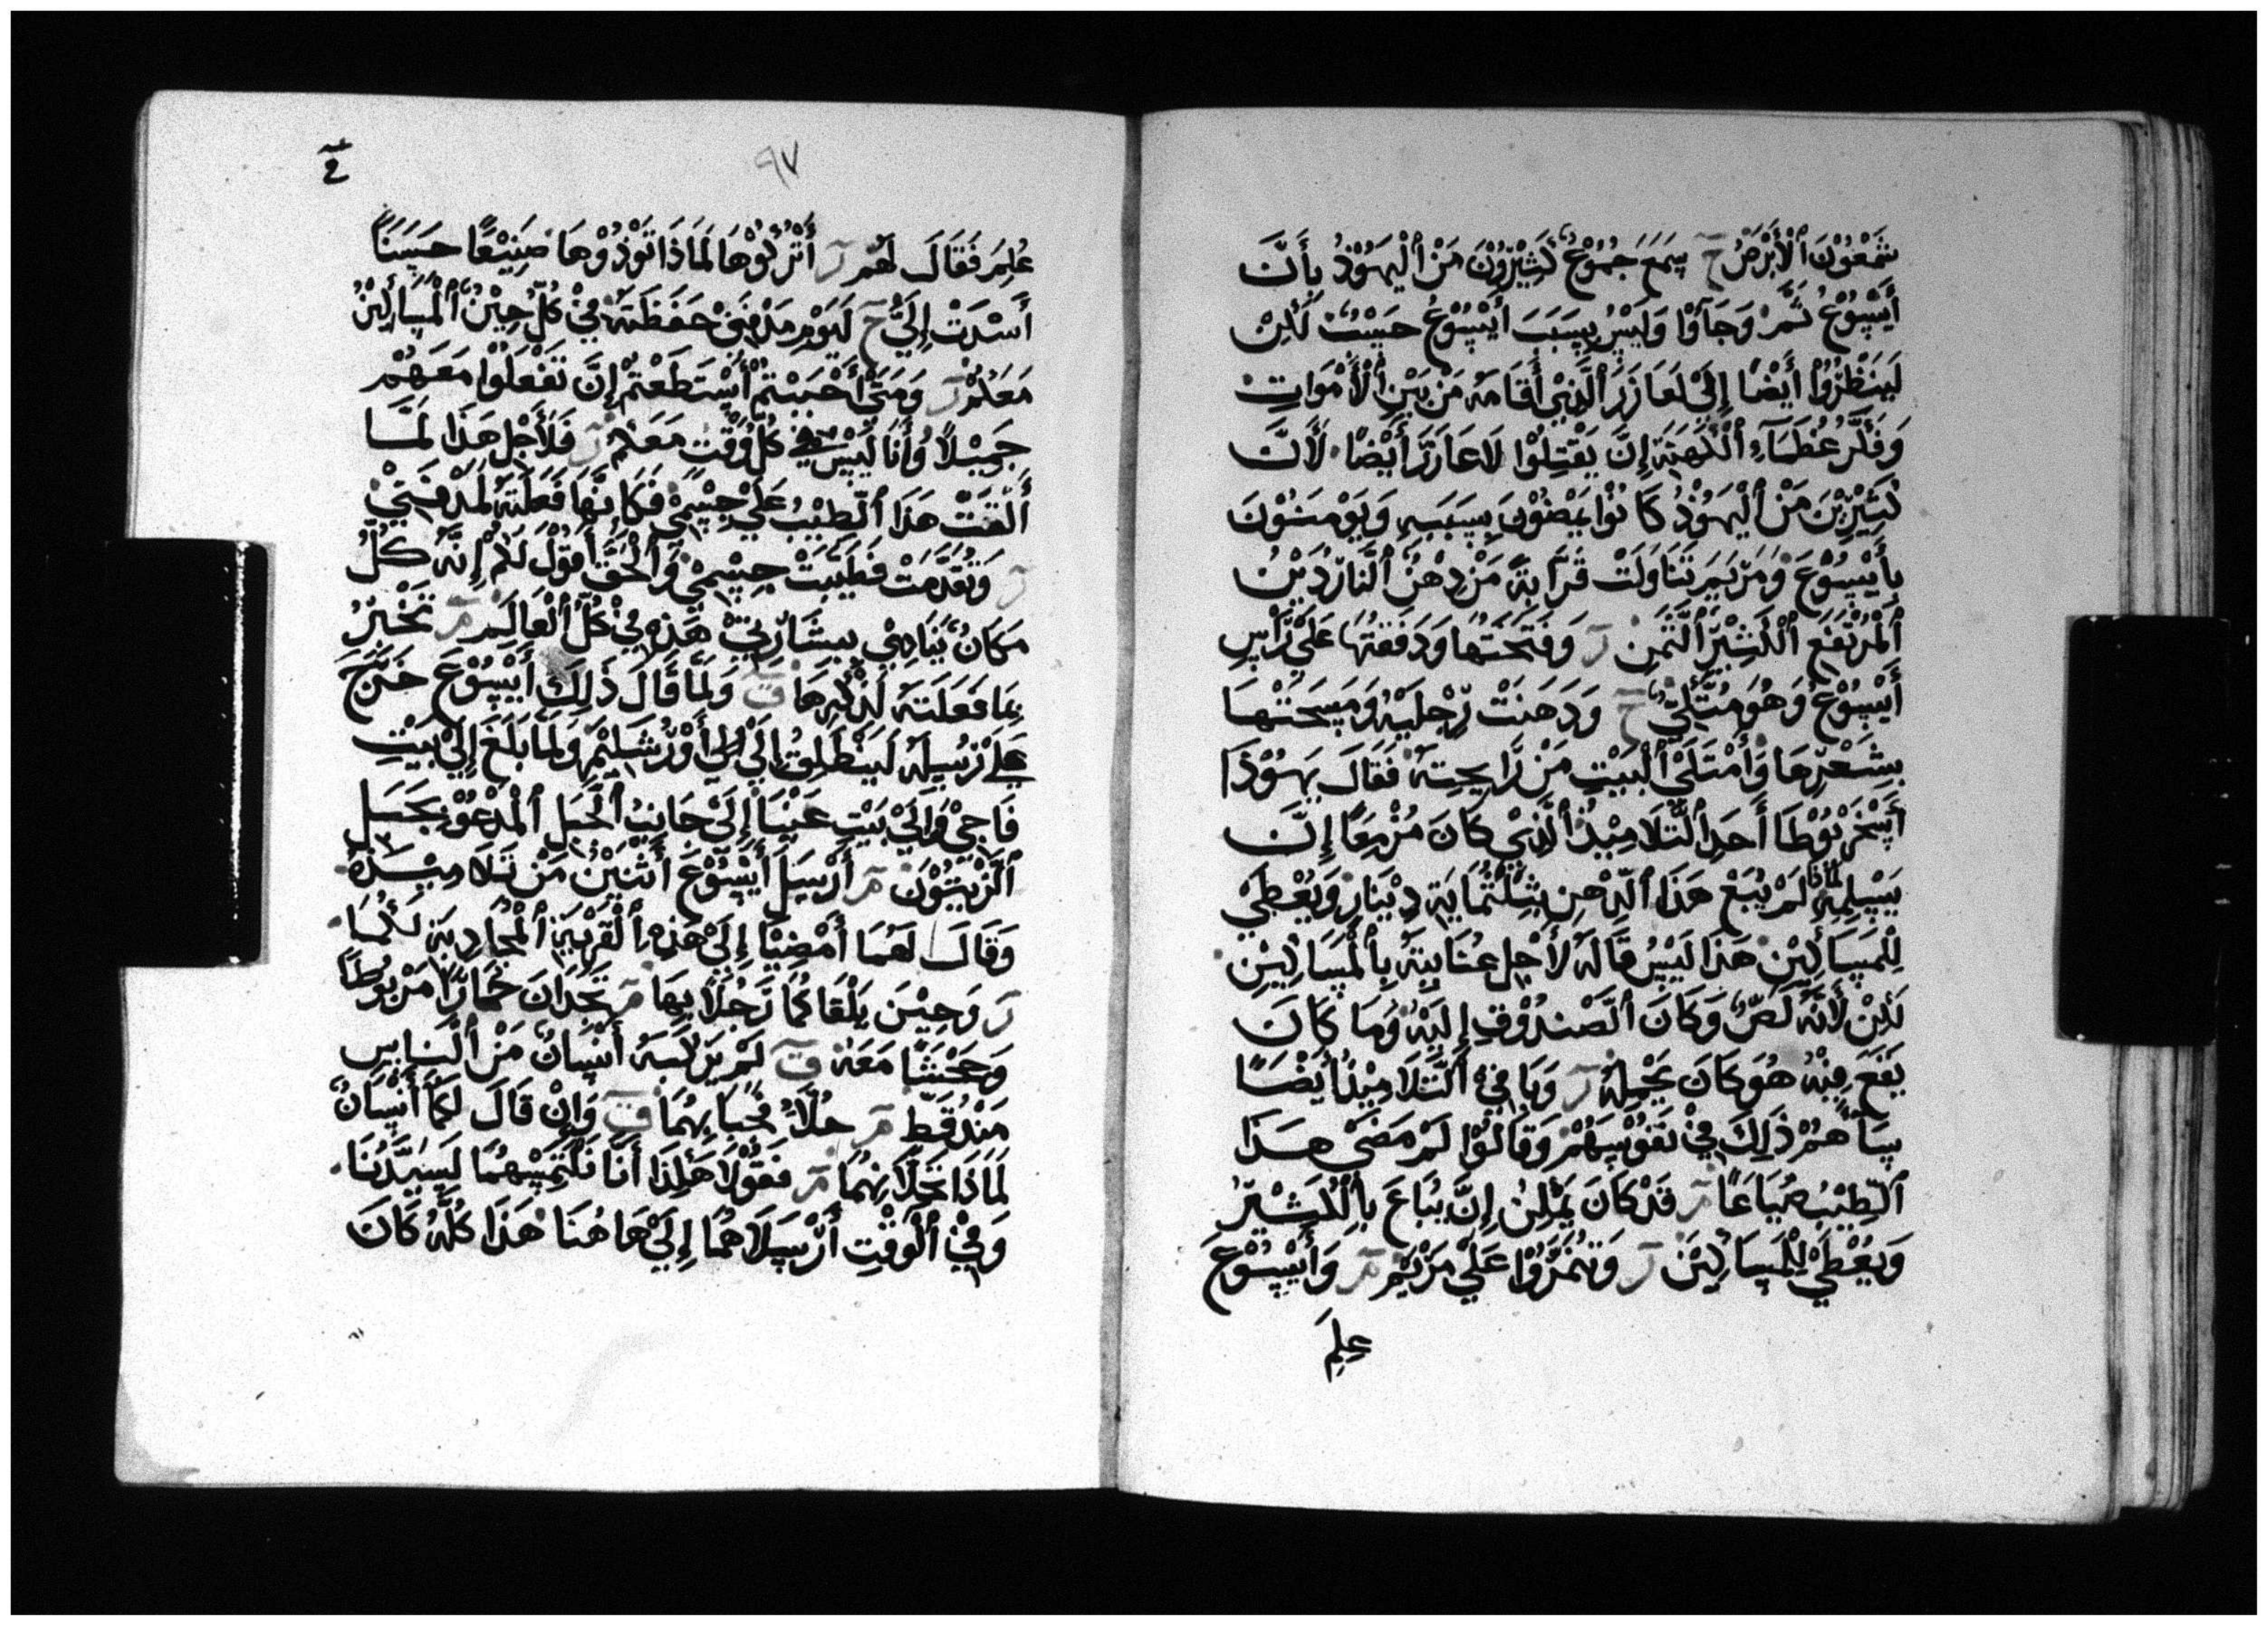 شَمْعُوْنَ ٱلْأَبْرَصْ ح سَمَعَ جُمُوْعٌ كَثِيْرُوْنَ مَنْ ٱلْيَهُوْدْ بِأَنَّ
أَيْسُوْعُ ثَمَّرْ وَجَآوْا وَلَيْسْ بِسَبَبَ أَيْسُوْعُ حَسْبُ لَكِنْ
لَيَنْظُرُوْا أَيْضًا إِلَى لَعَازَرَ ٱلَّذِيْ أَقَامَهُ مَنْ بَيْنِ ٱلْأَمْوَاتِ
وَفَكَّرْ عُظَمَآءِ ٱلْكَهَنَةِ إِنَّ يَقْتِلُوْا لَاعَازَرَ أَيْضًا لَأَنَّ
كَثِيْرِيْنَ مَنْ ٱلْيَهُوْدْ كَانُوْا يَمْضُوْنَ بِسَبَبِهِ وَيَوْمِنُوْنَ
بِأَيْسُوْعَ وَمَرْيَمَ تَنَاوَلَتْ قَرَابَةً مَنْ دِهْنُ ٱلنَّارْدِيْنْ
ٱلْمُرْتَفِعِ ٱلْكَثِيْرِ ٱلثَّمَنِ ر وَفَتَحَتْهَا وَدَفَقَتْهَا عَلَىْ رَاسِ
أَيْسُوْعُ وَهُوَ مُتَّكِئٌ ح وَدَهَنَتْ رِجْلَيْهُ وَمَسَحَتْهَا
بِشَعْرِهَا وَأَمْتَلَىْ ٱلْبَيْتِ مَنْ رَايِحِتَهُ فَقَالَ يَهُوْذَا
أَسْخَرْيُوْطَا أَحَدِ ٱلتَّلَامِيْذُ ٱلَّذِيْ كَانَ مُزْمِعًا إِنَّ
يَسْلِمِهِ لَمَاذَا لَمْ يُبَعْ هَذَا ٱلدِّهِنِ بِثِلْثُمَايَةِ دِيْنَارْ وَيُعْطَىْ
لِلْمَسَاكِيْنْ هَذَا لَيْسُ قَالَهُ لَأجِلِ عُنَايِتِهْ بِٱلْمَسَاكِيْنِ
لَكِنْ لَأَنَّهُ لَصٌّ وَكَانَ ٱلصَّنْدُوْقِ إِلَيْهُ وَمَا كَانَ
يَقَعَ فِيْهُ هُوَ كَانَ يَحْمِلَهُ ر وَبَاقِيْ ٱلتَّلَامِيْذُ أَيْضًا
سَآهُمْ ذَلِكَ فِيْ نَفُوْسِهُمْ وَقَالُوْا لَمْ مَضَىْ هَذَا
ٱلطِّيْبُ ضَيَاعًا م قَدْ كَانَ يَمْكِنْ إِنَّ يُبَاعَ بِٱلْكَثِيْرْ
وَيُعْطَىْ لِلْمَسَاكِيْنَ ر وَتْنَمَّرُوْا عَلَىْ مَرْيَمْ م وَأَيْسُوْعَ
عِلِمَ
٩٧
عُلِمَ فَقَالَ لَهُمْ ر أَتْرُكُوْهَا لَمَاذَا تَوْذُوْهَا صَنِيْعًا حَسَنًا
أَسْدَتْ إِلَيَّ ح لَيَوْمِ مَدْفَنِيْ حَفَظَتْهُ فِيْ كُلِّ حِيْنٌ ٱلْمَسَاكِيْنْ
مَعَكُمْ ر وَمَتَىْ أَحْبَبْتُمْ أَسْتَطَعْتُمْ إِنَّ تَفْعَلُوْا مَعَهُمْ
جَمِيْلًا وَأَنَا لَيْسْ فِيْ كُلِّ وَقْتْ مَعَكُمْ ر فَلَأَجْلِ هَذَا لَمَّا
أَلْقَتْ هَذَا ٱلطِّيْبُ عَلَىْ جِسْمِيْ فَكَانَّهَا فَعَلَتْهُ لَمَدْفَنِيْ
ر وَتْقَدَّمَتْ فَطَيَّبَتْ جِسْمِيْ وَٱلْحَقَّ أَقُوْلُ لَكُمْ إِنَّهُ كُلُّ
مَكَانٌ يُنَادِيْ بِبِشَارَتِيْ هَذِهِ فِيْ كُلِّ ٱلْعَالِمِ م تَخْبِرُ
بِمَا فَعَلَتْهُ لَذْكِرِهَا ق وَلَمَا قَالَ ذَلِكَ أَيْسُوْعَ خَرَجَ
عَلَىْ رَسِلِهُ لَيَنْطَلِقُ إِلَىْ أَوْرُشَلِيْمْ وَلَمَا بَلَغَ إِلَىْ بَيْتِ
فَاجِيْ وَإِلَىْ بَيْتِ عَنْيَا إِلَىْ جَانِبُ ٱلْجَبَلِ ٱلْمَدْعُوْ بِجَبَلِ
ٱلزَّيْتُوْنَ م أَرْسَلَ أَيْسُوْعَ أَثْنَيْنْ مَنْ تَلَامِيْذَهُ
وَقَالَ لَهُمَا أَمْضِيَا إِلَىْ هَذِهِ ٱلْقَرْيَةِ ٱلْمُحَادِيَةِ لَكُمَا
ر وَحِيْنَ يَلْقَاكُمَا رَجُلًا بِهَا م تَجْدَانَ حُمَارًا مَرْبُوطًا
وَجَحْشًا مَعَهُ ق لَمْ يَرْكَبَهُ أَنْسَانٌ مَنْ ٱلنَّاسِ
مَنْذُ قَطِّ م حُلَّاهُ وَجَيْبَا بِهُمَا ق وَإِنْ قَالَ لَكُمَا أَنْسَانٌ
لَمَاذَا تَحِلَّانِهُمَا م فَقُوْلَا هَكِذَا أَنَّا نَلْتَمِسْهُمَا لَسَيِّدُنَا
وَفِيْ ٱلْوَقْتِ أَرْسِلَاهُمَا إِلَىْ هَاهُنَا هَذَا كُلُّهُ كَانَ